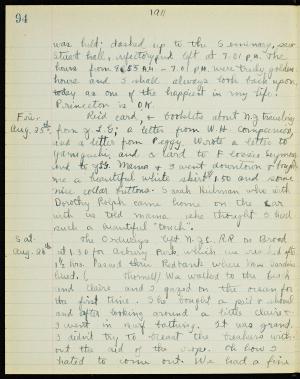 94 1911
was built; dashed up to the Seminary, saw
Stuart hall, refectory and left at 7.01 P.M. The
hours from 8.53 A.M. - 7.01 P.M. were truly golden
hours and I shall always look back upon
today as one of the happiest in my life.
Princeton is O.K.
Frid. Recd card, + booklets about N.J. traveling
Aug. 25th from a letter from W.H.
and a letter from Peggy. Wrote a letter to
and a card to F
and to Mama + I went downtown + bought
me a beautiful white skirt $1.50 and some
nice collar buttons. Sarah who with
Dorothy Rolph came home on the car
with us told mama she thought I had
such a beautiful "touch".
Sat. The Ordways left N.Y.C. R.R. on Broad
Aug. 26th at 1.30 for Asbury Park which we reached after
1½ hrs. Passed thru Red Bank where Van
lived. ( himself) We walked to the
and Claire and I gazed on the ocean for
the first time. She bought a pail + shovel
and after looking around a little Claire +
I went in surf bathing. It was grand.
I didn't try to breast the breakers with-
out the aid of the rope. Oh how I
hated to come out. We had a fine